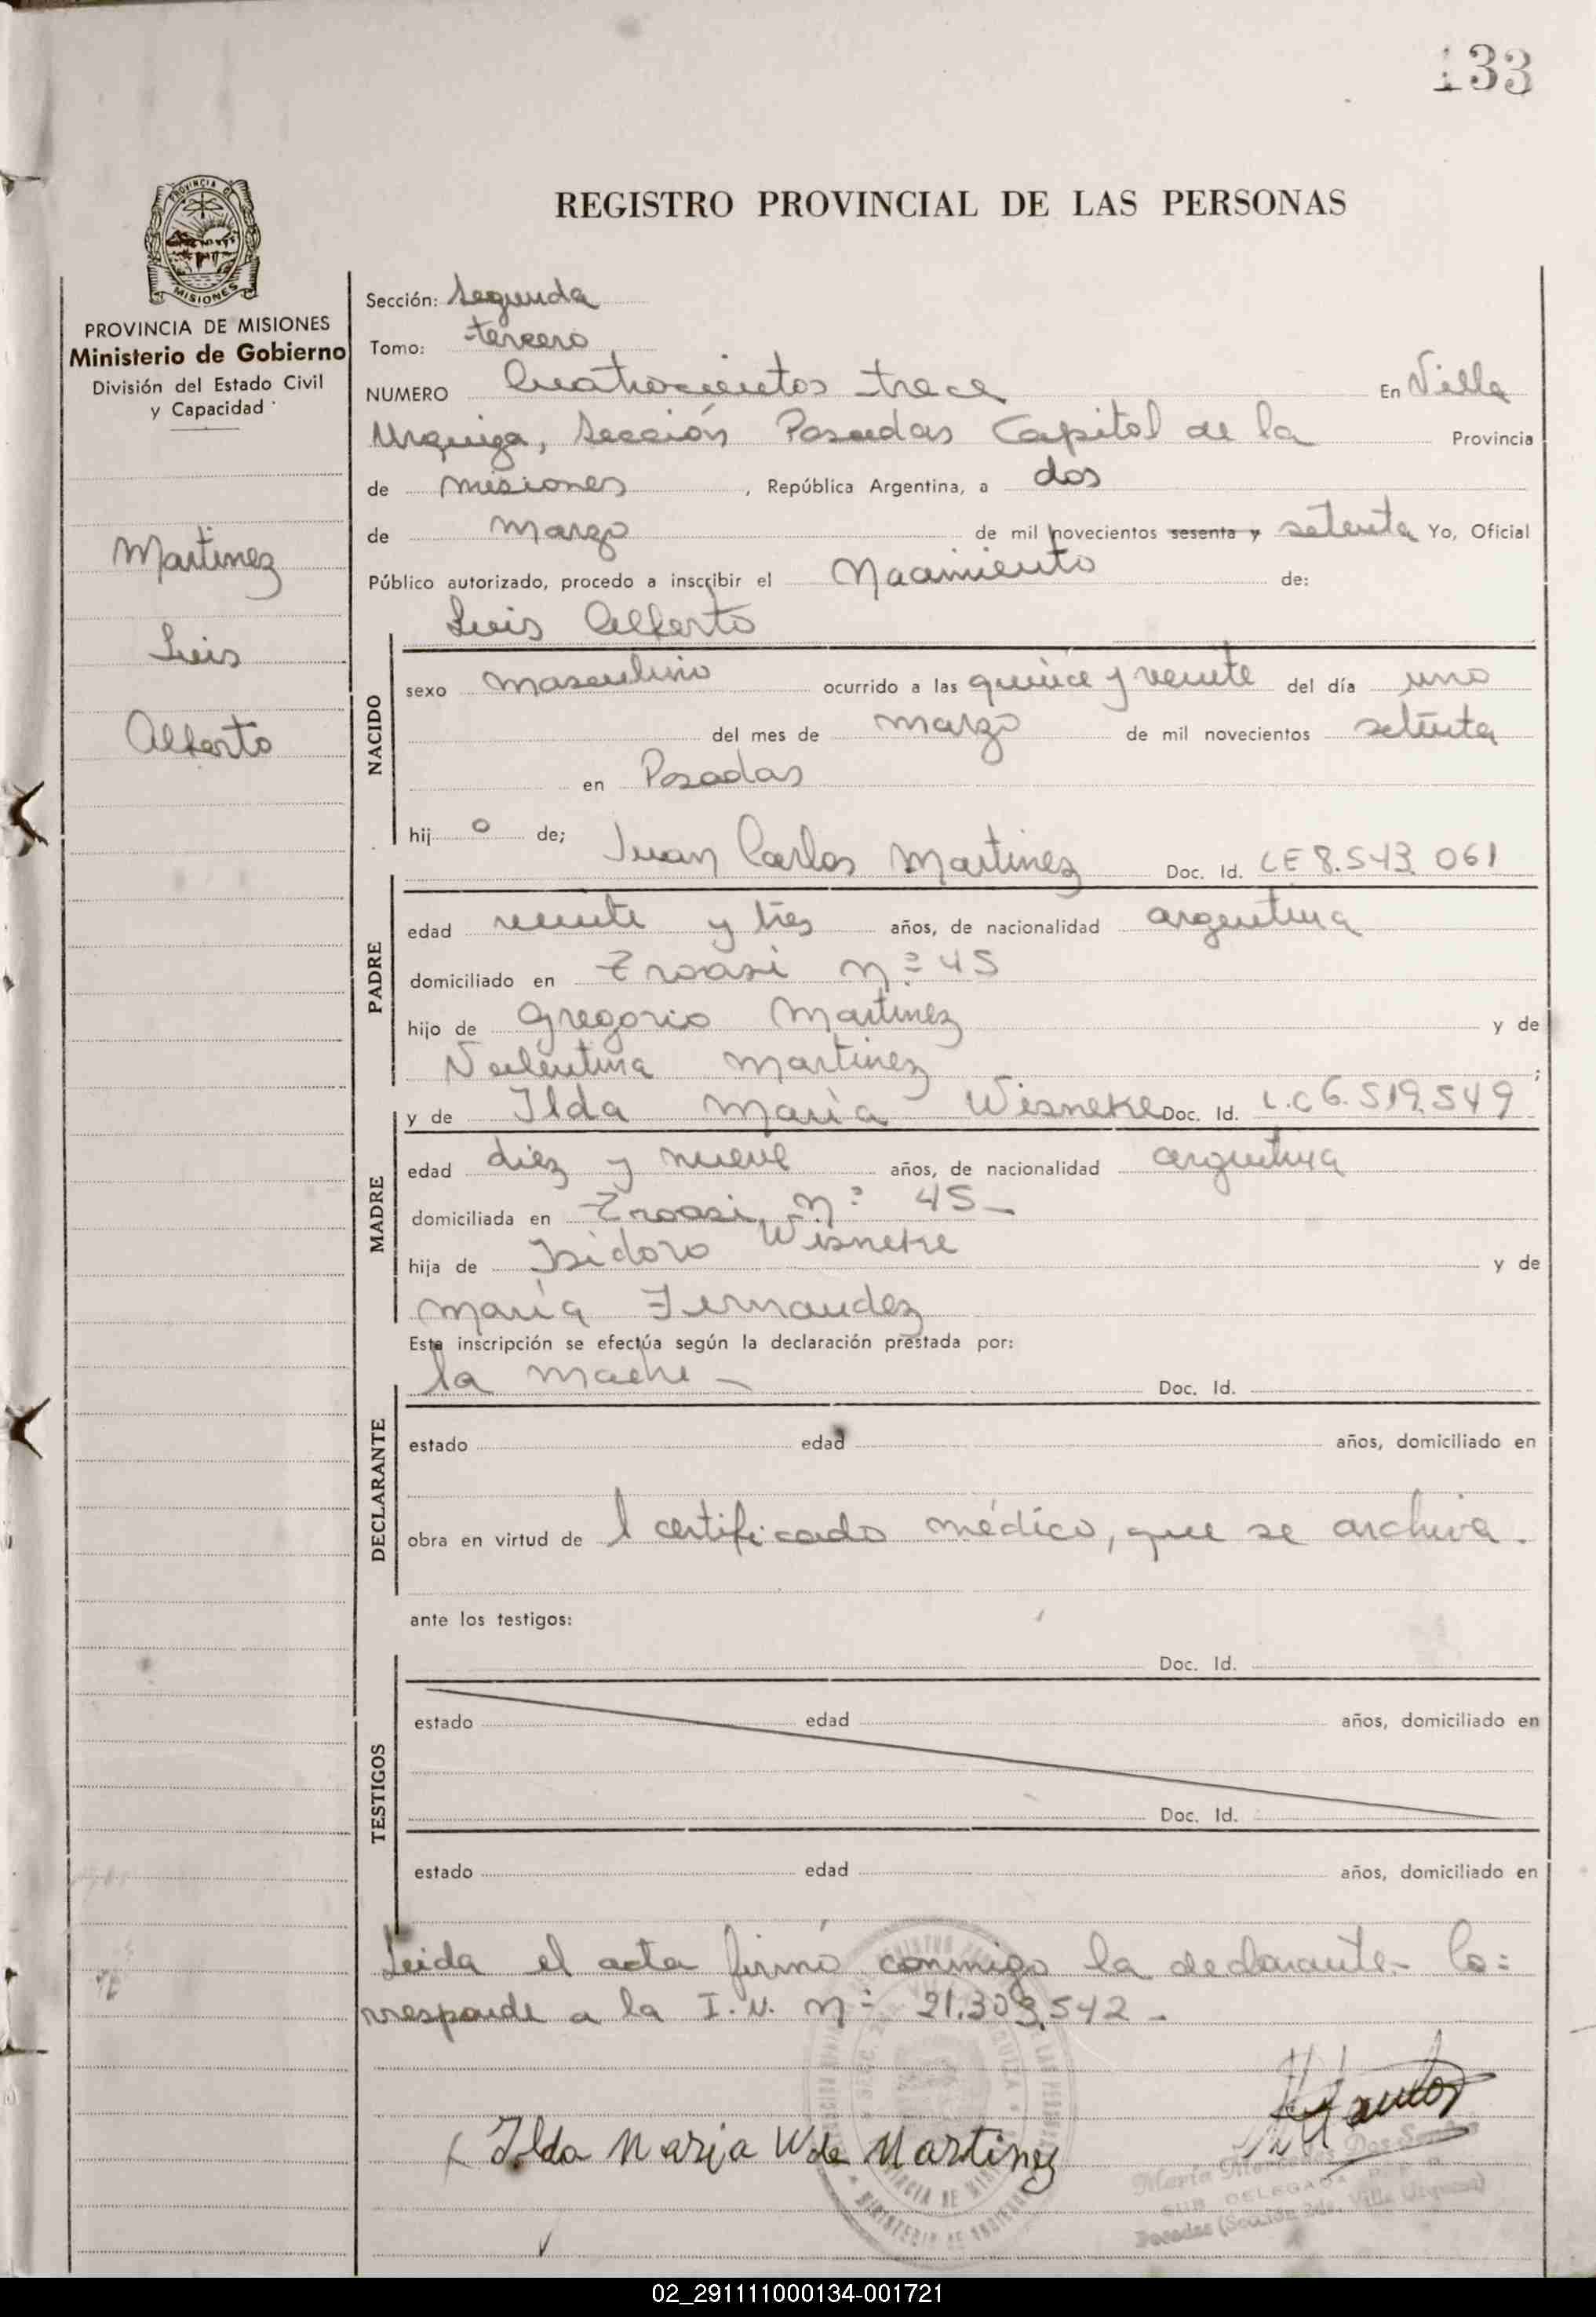 133
REGISTRO PROVINCIAL DE LAS PERSONAS
PROVINCIA DE
MISIONES
PROVINCIA DE MISIONES
Ministerio de Gobierno
División del Estado Civil
y Capacidad
Martinez
Luis
Alberto
Sección: Segunda
Tomo: tercero
NUMERO Cuatrocientos trece En Villa
Urquiza, Sección Posadas Capital de la Provincia
de misiones, República Argentina, a dos
de marzo de mil novecientos sesenta y setenta Yo, Oficial
Público autorizado, procedo a inscribir el Nacimiento de:
Luis Alberto
NACIDO
sexo masculino ocurrido a las quince y veinte del día uno
del mes de marzo de mil novecientos setenta
en Posadas
hij o de; Juan Carlos Martinez Doc. Id. LE 8.543.061
PADRE
edad veinte y tres años, de nacionalidad argentina
domiciliado en nº 45
hijo de Gregorio Martinez y de
Valentina Martinez;
y de Ilda María Wisneke Doc. Id. L.C 6.519.549
MADRE
edad diez y nueve años, de nacionalidad argentina
domiciliada en nº 45_
hija de Isidoro Wisneke y de
María Fernandez
Esta inscripción se efectúa según la declaración prestada por:
la madre - Doc. Id.
DECLARANTE
estado edad años, domiciliado en
obra en virtud de l certificado médico, que se archiva.
ante los testigos:
Doc. Id.
TESTIGOS
estado edad años, domiciliado en
Doc. Id.
estado edad años, domiciliado en
Leida el acta firmó conmigo la declarante. Co=
rresponde a la I.N. Nº 21.303.542-
Ilda Maria W de Martinez
SUB DELEGADA
Posadas (Sección 2da. Villa Urquiza)
02_291111000134-001721